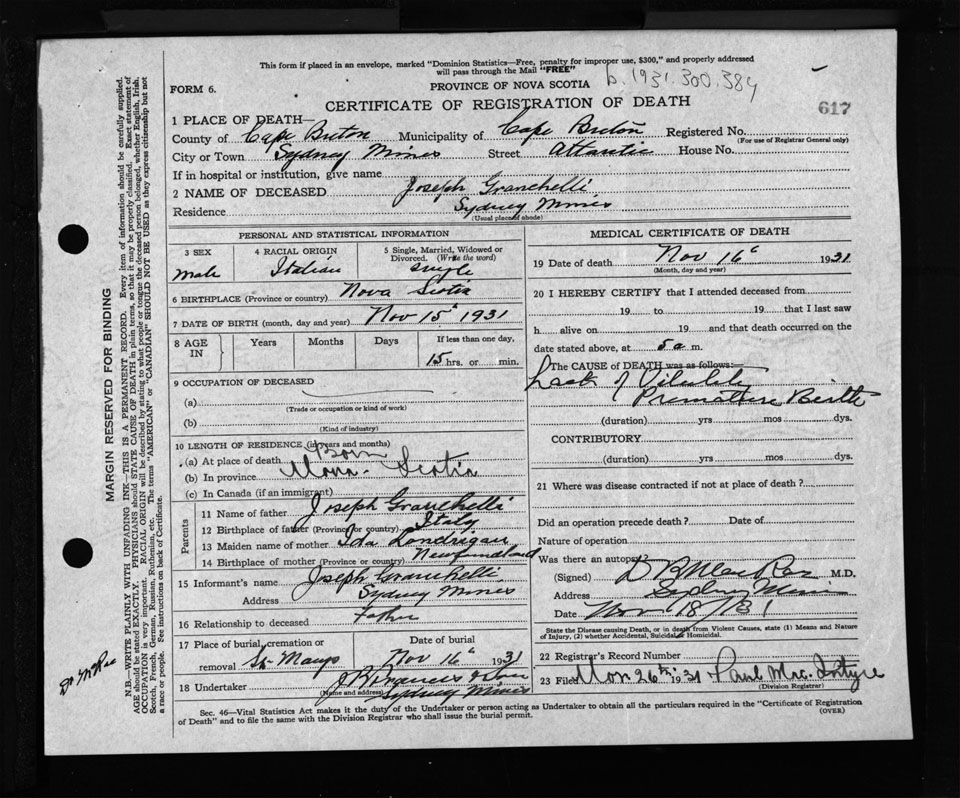 This form if placed in an envelope, marked "Dominion Statistics—Free, penalty for improper use, $300," and properly addressed
will pass through the Mail "FREE"
b. 1931. 300. 384
FORM 6.
PROVINCE OF NOVA SCOTIA
CERTIFICATE OF REGISTRATION OF DEATH
617
1 PLACE OF DEATH—
County of Cape Breton Municipality of Cape Breton Registered No.
(For use of Registrar General only)
City or Town Sydney Mines Street Atlantic House No.
If in hospital or institution, give name
2 NAME OF DECEASED Joseph Granchelli
Residence Sydney Mines
(Usual place of abode)
PERSONAL AND STATISTICAL INFORMATION
3 SEX male
4 RACIAL ORIGIN Italian
5 Single, Married, Widowed or Divorced. (Write the word) single
6 BIRTHPLACE (Province or country) Nova Scotia
7 DATE OF BIRTH (month, day and year) Nov 15 1931
8 AGE IN Years Months Days If less than one day, 15 hrs. or min.
9 OCCUPATION OF DECEASED
(a)
(Trade or occupation or kind of work)
(b)
(Kind of industry)
10 LENGTH OF RESIDENCE (in years and months)
(a) At place of death Born
(b) In province Nova Scotia
(c) In Canada (if an immigrant)
Parents
11 Name of father Joseph Granchelli
12 Birthplace of father (Province or country) Italy
13 Maiden name of mother Ida Londrigan
14 Birthplace of mother (Province or country) Newfoundland
15 Informant's name Joseph Granchelli
Address Sydney Mines
16 Relationship to deceased Father
17 Place of burial, cremation or removal St. Marys
Date of burial Nov 16 1931
18 Undertaker
(Name and address) Sydney Mines
MEDICAL CERTIFICATE OF DEATH
19 Date of death Nov 16 1931
(Month, day and year)
20 I HEREBY CERTIFY that I attended deceased from
19 to 19 that I last saw
h alive on 19 and that death occurred on the
date stated above, at 5 a m.
The CAUSE of DEATH was as follows:
Lack of Vitality
Premature Birth
(duration) yrs mos dys.
CONTRIBUTORY
(duration) yrs mos dys.
21 Where was disease contracted if not at place of death?
Did an operation precede death? Date of
Nature of operation
Was there an autopsy?
(Signed) D B MacRae M.D.
Address Sydney Mines
Date Nov 18/31
State the Disease causing Death, or in death from Violent Causes, state (1) Means and Nature
of Injury, (2) whether Accidental, Suicidal or Homicidal.
22 Registrar's Record Number
23 Filed Nov 26th 1931 Paul MacIntyre
(Division Registrar)
Sec. 46—Vital Statistics Act makes it the duty of the Undertaker or person acting as Undertaker to obtain all the particulars required in the "Certificate of Registration
of Death" and to file the same with the Division Registrar who shall issue the burial permit.
(OVER)
MARGIN RESERVED FOR BINDING
N.B.—WRITE PLAINLY WITH UNFADING INK—THIS IS A PERMANENT RECORD. Every item of information should be carefully supplied.
AGE should be stated EXACTLY. PHYSICIANS should STATE CAUSE OF DEATH in plain terms, so that it may be properly classified. Exact statement of
OCCUPATION is very important. RACIAL ORIGIN will be described by stating to what people or tongue the deceased person belonged, whether English, Irish,
Scotch, French, German, Russian, Ruthenian, etc. The terms "AMERICAN" or "CANADIAN" SHOULD NOT BE USED as they express citizenship but not
a race or people. See instructions on back of Certificate.
Dr McRae